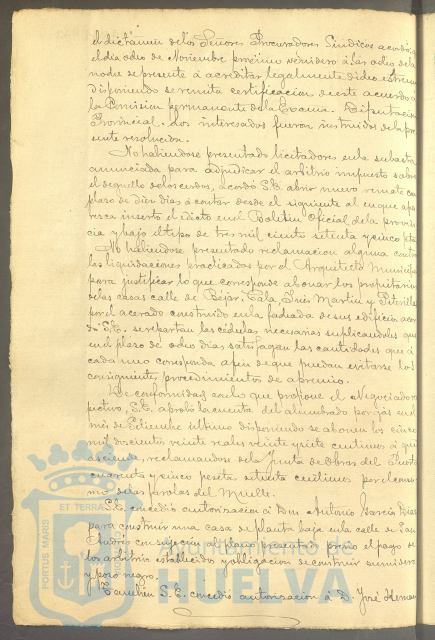 el dictámen de los Señores Procuradores Síndicos acordó q.
el dia ocho de Noviembre próximo venidero á las ocho de la
noche se presente á acreditar legalmente dicho estremo
disponiendo se remita certificacion de este acuerdo á
la Comision permanente de la Excma. Diputacion
Provincial. Los interesados fueron instruidos de la pre-
sente resolucion.
No habiendose presentado licitadores en la subasta
anunciada para adjudicar el arbitrio impuesto sobre
el deguello de los cerdos, acordó S.E. abrir nuevo remate con
plazo de diez dias á contar desde el siguiente al en que apa-
resca inserto el edicto en el Boletin Oficial de la provin-
cia y bajo el tipo de tres mil ciento setenta y cinco
No habiendose presentado reclamacion alguna contra
las liquidaciones practicadas por el Arquitecto Municipal
para justificar lo que corresponde abonar los propietarios
de las casas calle de Béjar, Cala, Ines Martin y
por el acerado construido en la fachada de sus edificios acor-
dó S.E. se repartan las cédulas necesarias suplicandoles que
en el plazo de ocho dias satisfagan las cantidades que á
cada uno corresponda á fin de que puedan evitarse los
consiguientes procedimientos de apremio.
De conformidad con lo que propone el Negociado res-
pectivo, S.E. aprobó la cuenta del alumbrado por gas en el
mes de Setiembre último disponiendo se abonen los cinco
mil doscientos veinte reales veinte y siete centimos á que
asciende, reclamandose de la Junta de Obras del Puerto
cuarenta y cinco pesetas setenta centimos por el consu-
mo de las farolas del Muelle.
S.E. concedió autorizacion á Don Antonio Garcia Diaz
para construir una casa de planta baja en la calle de San
Andrés con sujecion al plano presentado previo el pago de
los arbitrios establecidos y obligacion de construir sumidero
y pozo negro.
Tambien S.E. concedió autorizacion á D. José Hernan
PORTUS MARIS
ET TERRAE
Ayuntamiento de
HUELVA